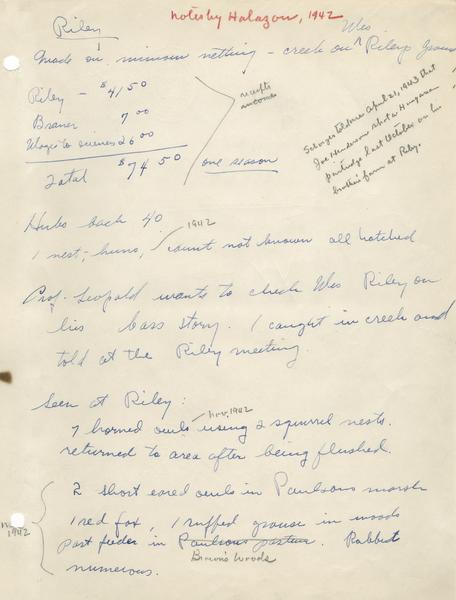 Notes by Halazon, 1942
Riley
Made on minnow netting – creek on Wes Riley's
Riley – $41 50
7 00
26 00
Total $74 50 one season
receipts
Schorger told me April 21, 1943 that
Joe Henderson shot a Hungarian
partridge last October on his
brother's farm at Riley.
Hubs back 40
1942
1 nest; huns, count not known all hatched
Prof. Leopold wants to check Wes Riley on
his bass story. 1 caught in creek and
told at the Riley meeting.
Seen at Riley:
Nov, 1942
7 horned owls using 2 squirrel nests.
returned to area after being flushed.
2 short eared owls in Paulsons marsh
1 red fox, 1 ruffed grouse in woods
1942
past feeder in Paulsons pasture. Rabbit
Brown's Woods
numerous.